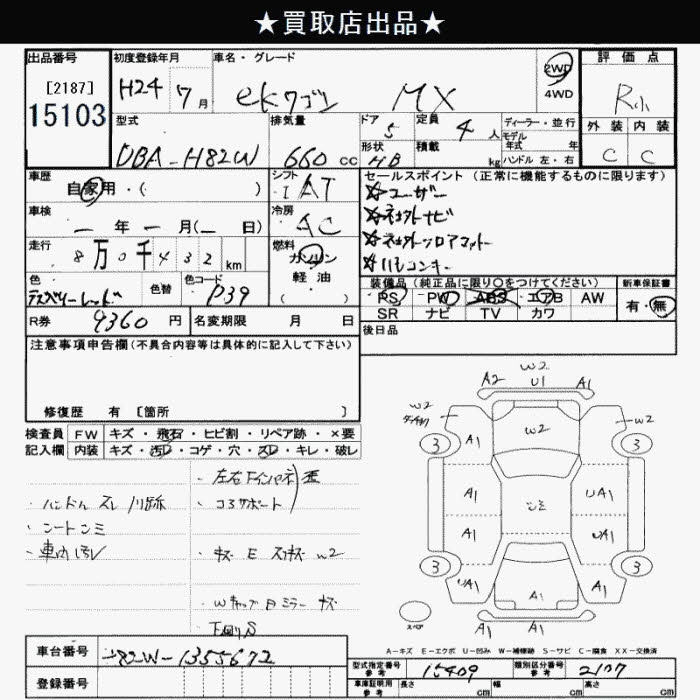 ★買取店出品★
出品番号 初度登録年月 車名・グレード 2WD 評価点
[2187] H24年 7月 ekワゴン MX 4WD R小
15103 外装 内装
型式 排気量 ドア 定員 ディーラー・並行
DBA-H82W 660cc 5 4人 モデル 年式 年
形状 積載 kg ハンドル 左・右 C C
HB
車歴 シフト セールスポイント(正常に機能するものに限ります)
自家用・( ) I AT ☆ユーザー
車検 冷房 ☆社外ナビ
ー年ー月(ー日) AC ☆社外フロアマット
走行 燃料 ☆リモコンキー
8万0千432km ガソリン
軽油
( )
色 色替 色コード 装備品(純正品に限り○をつけてください) 新車保証書
ラズベリーレッド P39 PS PW ABS エアB AW 有・無
SR ナビ TV カワ
R券 9360円 名変期限 月 日 後日品
注意事項申告欄(不具合内容等は具体的に記入して下さい)
修復歴 有 [箇所 ]
検査員 FW キズ・飛石・ヒビ割・リペア跡・×要
記入欄 内装 キズ・汚レ・コゲ・穴・スレ・キレ・破レ
・左右Fインパネ
・ハンドル スレ ・コアサポート
・シートシミ
・車内汚レ ・キズ E W2
・Wキャップ ミラー キズ
下回りS
W2
A2 U1 A1
W2 W2 W2
3 A1 3
A1 シミ UA1 A1
A1 UA1
3 3
UA1 A1 A1
A1
スペア
A-キズ E-エクボ U-凹み W-補修跡 S-サビ C-腐食 XX-交換済
車台番号 H82W-1355672
登録番号
型式指定番号 参考 15409 類別区分番号 参考 2107
車庫証明用 参考 長さ cm 幅 cm 高さ cm